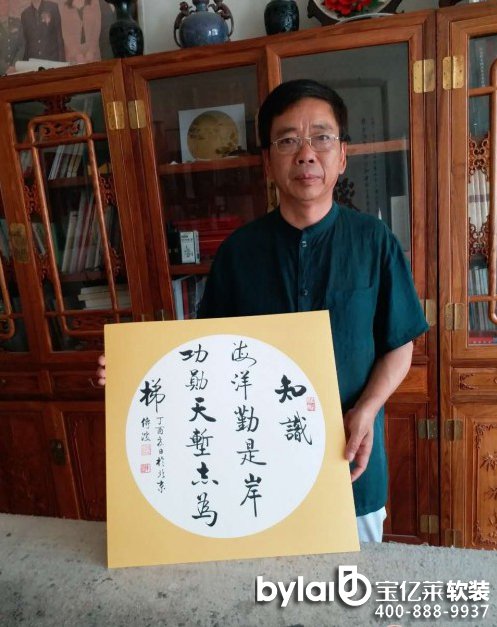 知識
海洋勤是岸
功勛天塹志為
梯
丁酉夏日於北京
bylai
宝亿莱软装
400-888-9937